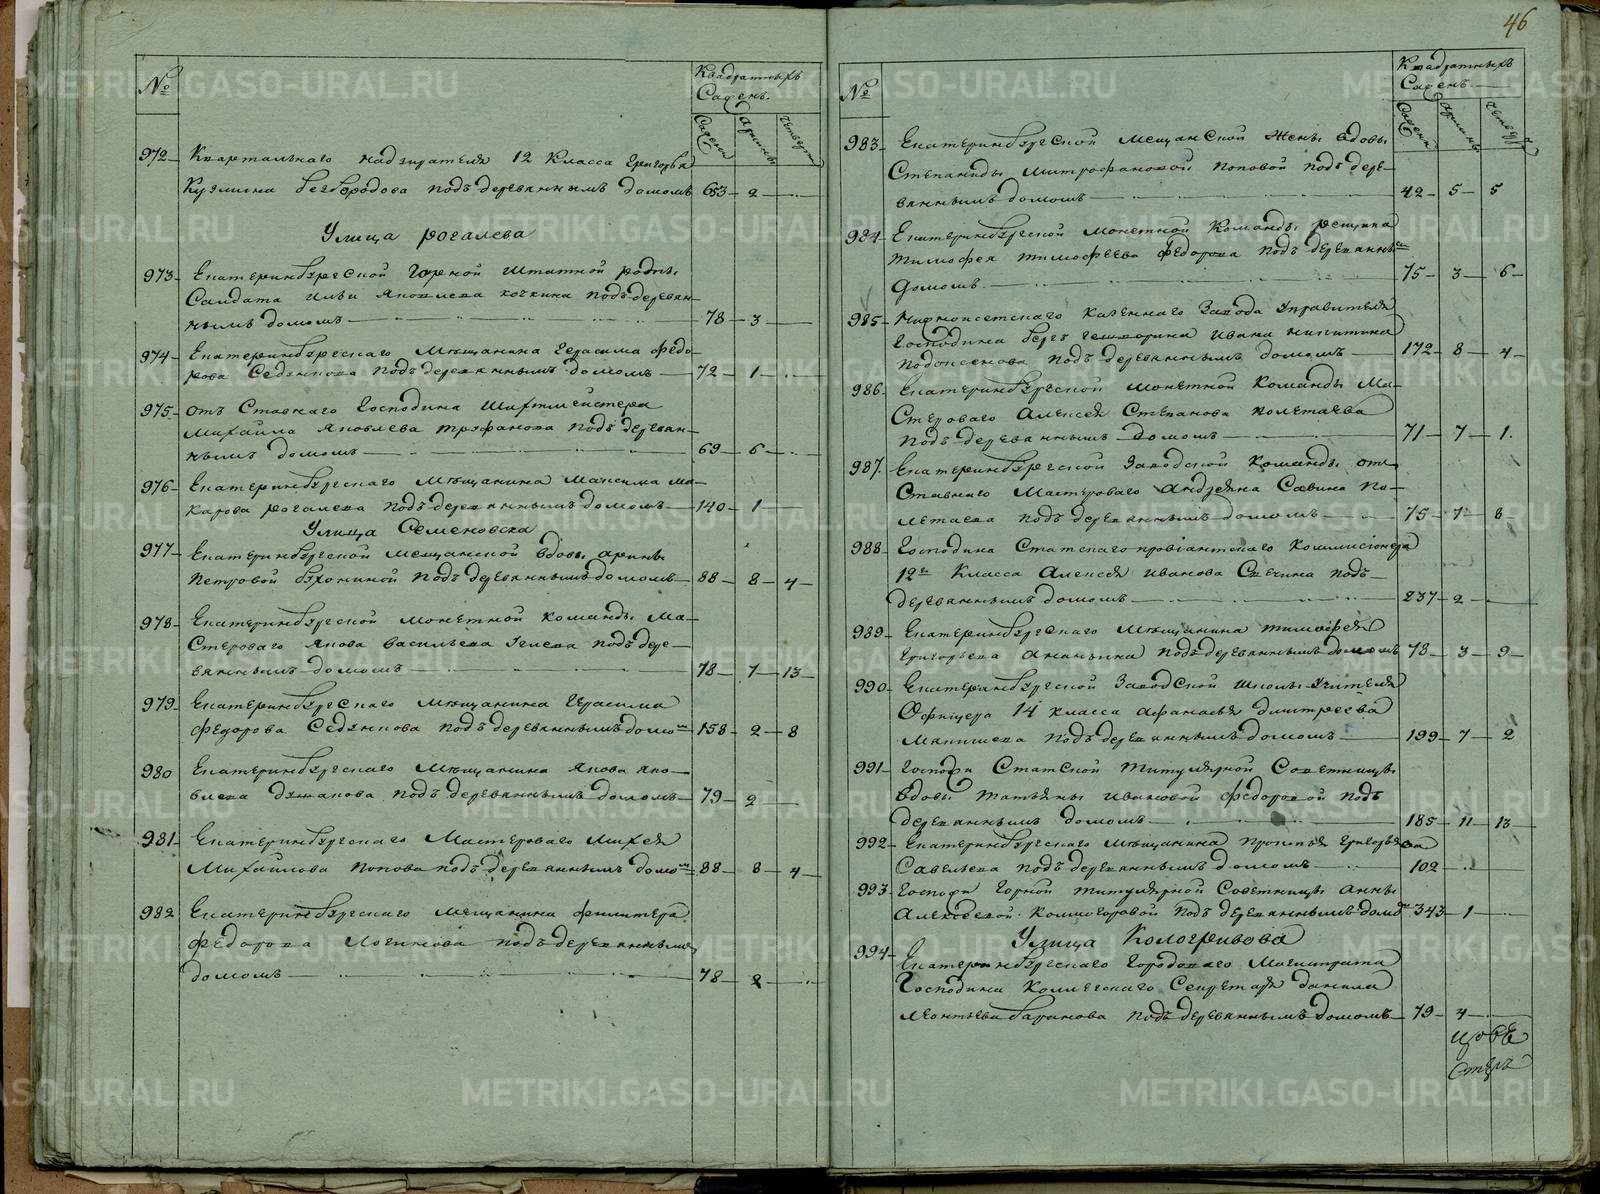 №
Квадратныхъ
Саженъ.
Сажени
Аршины
Четверти
972 Квартальнаго надзирателя 12 Класса Григорья
Кузмина Безбородова подъ деревяннымъ домомъ 653 2
Улица рогалева
973 Екатеринбургской Горной Штатной роты
Салдата Ильи Яковлева кочкина подъ деревян-
нымъ домомъ 78 3
974 Екатеринбургскаго Мѣщанина Герасима Федо-
рова Седянкова подъ деревяннымъ домомъ 72 1
975 отъ Ставнаго Господина Шихтмейстера
Михайла Яковлева трефанова подъ деревян-
нымъ домомъ 69 6
976 Екатеринбургскаго Мѣщанина Максима ма-
карова рогалева подъ деревяннымъ домомъ 140 1
Улица Семеновска
977 Екатеринбургской мещанской вдовы арины
Петровой подъ деревяннымъ домомъ 88 8 4
978 Екатеринбургской монетной команды Ма-
стероваго Якова васильева подъ дере-
вяннымъ домомъ 78 7 13
979 Екатеринбургскаго мѣщанина Герасима
федорова Седянкова подъ деревяннымъ домомъ 158 2 8
980 Екатеринбургскаго Мѣщанина Якова яко-
влева подъ деревяннымъ домомъ 79 2
981 Екатеринбургскаго Мастероваго Михея
Михайлова попова подъ деревяннымъ домомъ 88 8 4
982 Екатеринбургскаго мещанина филитера
федорова Логинова подъ деревяннымъ
домомъ 78 2
46
№
Квадратныхъ
Саженъ
Сажени
Аршины
Четверти
983 Екатеринбургской мещанской жены вдовы
Степаниды митрофановой поповой подъ дере-
вяннымъ домомъ 42 5 5
984 Екатеринбургской монетной Команды резщика
тимофея тимофеева федорова подъ деревяннымъ
домомъ 75 3 6
985 Нижноисетскаго казеннаго Завода Управителя
Господина Бергъ гешворина Ивана никитина
подоксенова подъ деревяннымъ домомъ 172 8 4
986 Екатеринбургской монетной команды Ма-
стероваго Алексея Степанова полетаева
подъ деревяннымъ домомъ 71 7 1
987 Екатеринбургской Заводской команды от-
ставнаго мастероваго андреяна Савина По-
летаева подъ деревяннымъ домомъ 75 7 8
988 Господина Статскаго провiантскаго коммисiонера
12го Класса Алексея иванова Свечина подъ
деревяннымъ домомъ 237 2
989 Екатеринбургскаго Мѣщанина тимофея
Григорьева ананьина подъ деревяннымъ домомъ 78 3 9
990 Екатеринбургской Заводской школы учителя
Офицера 14 класса афанасья дмитреева
подъ деревяннымъ домомъ 199 7 2
991 Госпожи Статской титулярной Советницы
вдовы татьяны ивановой федоровой подъ
деревяннымъ домомъ 185 11 13
992 Екатеринбургскаго Мѣщанина прокопья Григорьева
Савельева подъ деревяннымъ домомъ 102
993 Госпожи Горной титулярной Советницы анны
Алексеевой коммогоровой подъ деревяннымъ домомъ 343 1
Улица Кологривова
994 Екатеринбургскаго городоваго магистрата
Господина Коллегскаго Секретаря данила
леонтьева баранова подъ деревяннымъ домомъ 79 4
METRIKI.GASO-URAL.RU